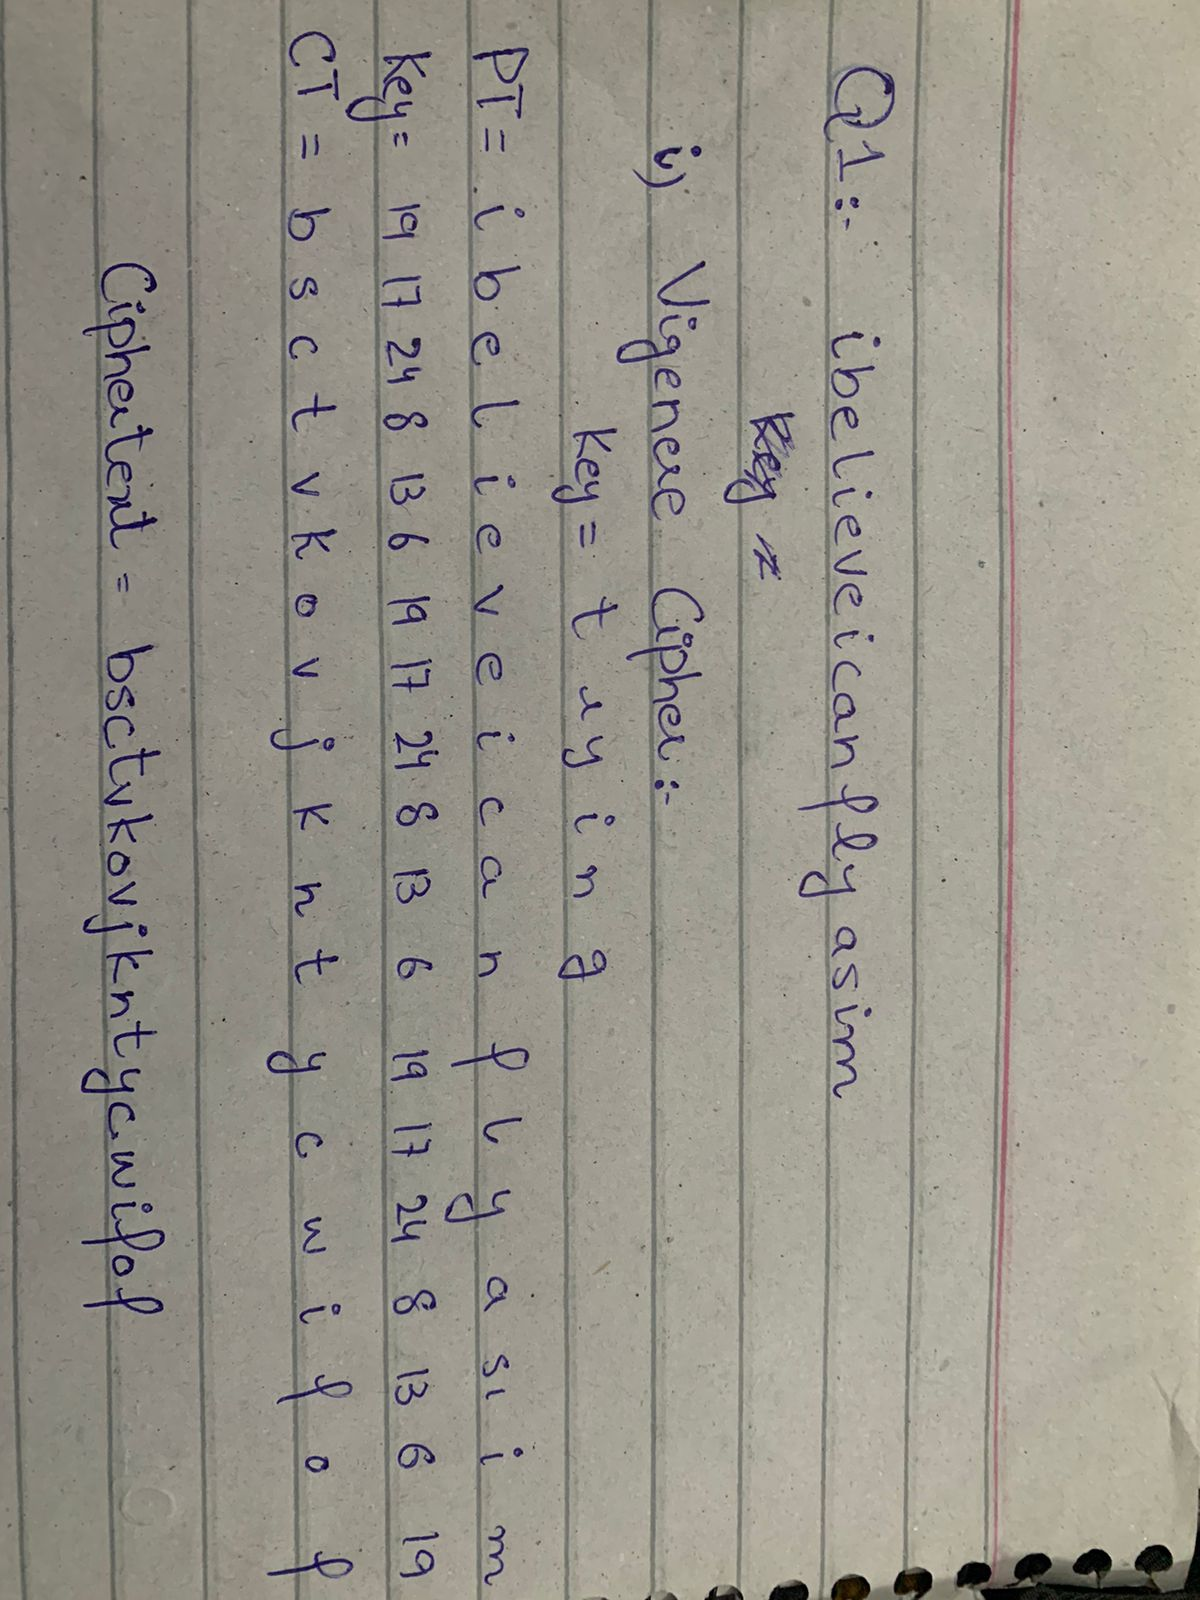 Q1:- ibelieveicanflyasim
Key =
i) Vigenere Cipher:-
Key = t r y i n g
PT = i b e l i e v e i c a n f l y a s i m
Key = 19 17 24 8 13 6 19 17 24 8 13 6 19 17 24 8 13 6 19
CT = b s c t v k o v j k n t y c w i f o f
Ciphertext = bsctvkovjkntycwifof